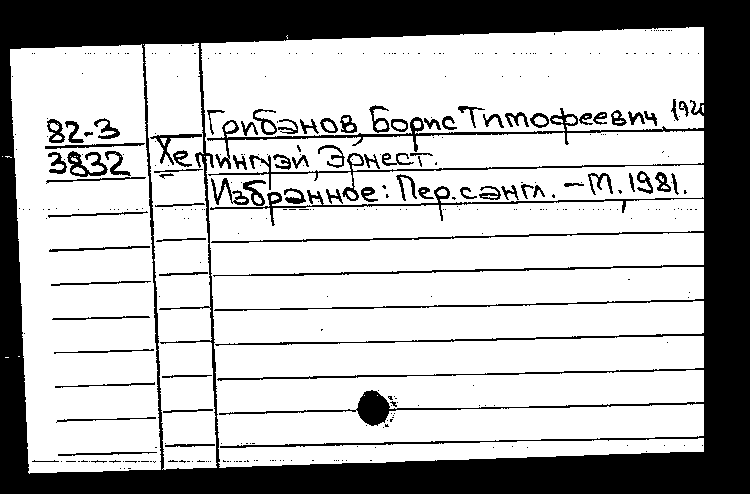 82-3 Грибанов, Борис Тимофеевич, 192
3832 Хемингуэй, Эрнест.
Избранное: Пер. с англ. – М., 1981.